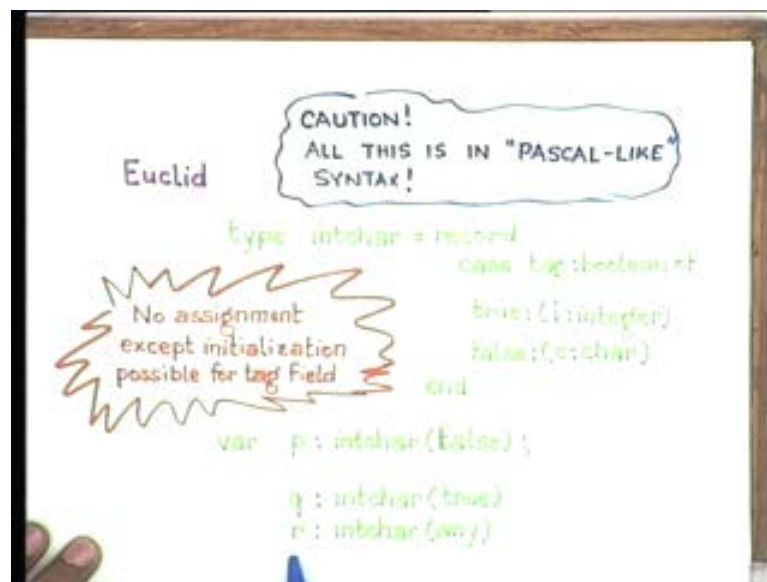 CAUTION!
ALL THIS IS IN "PASCAL-LIKE"
SYNTAX!
Euclid
type intchar = record
case tag:boolean of
true:(i:integer)
false:(c:char)
end
No assignment
except initialization
possible for tag field
var p : intchar(false);
q : intchar(true)
r : intchar(any)